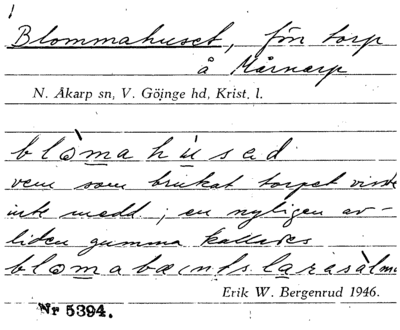 Blommahuset, förr torp
å Mårnarp
N. Åkarp sn, V. Göinge hd, Krist. l.
blòmahùsad
vem som brukat torpet visste
ink medd; en nyligen av-
liden gumma kallades
Erik W. Bergenrud 1946.
Nr 5394.